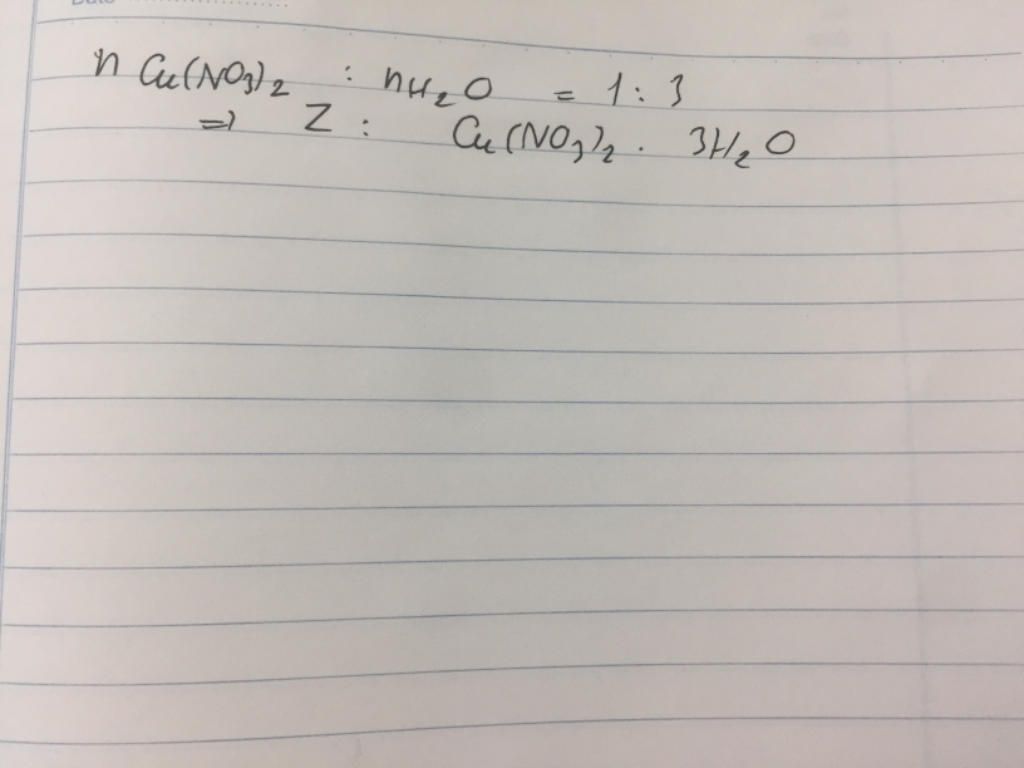 Date
n Cu(NO3)2 : nH2O = 1 : 3
=> Z : Cu(NO3)2 . 3H2O